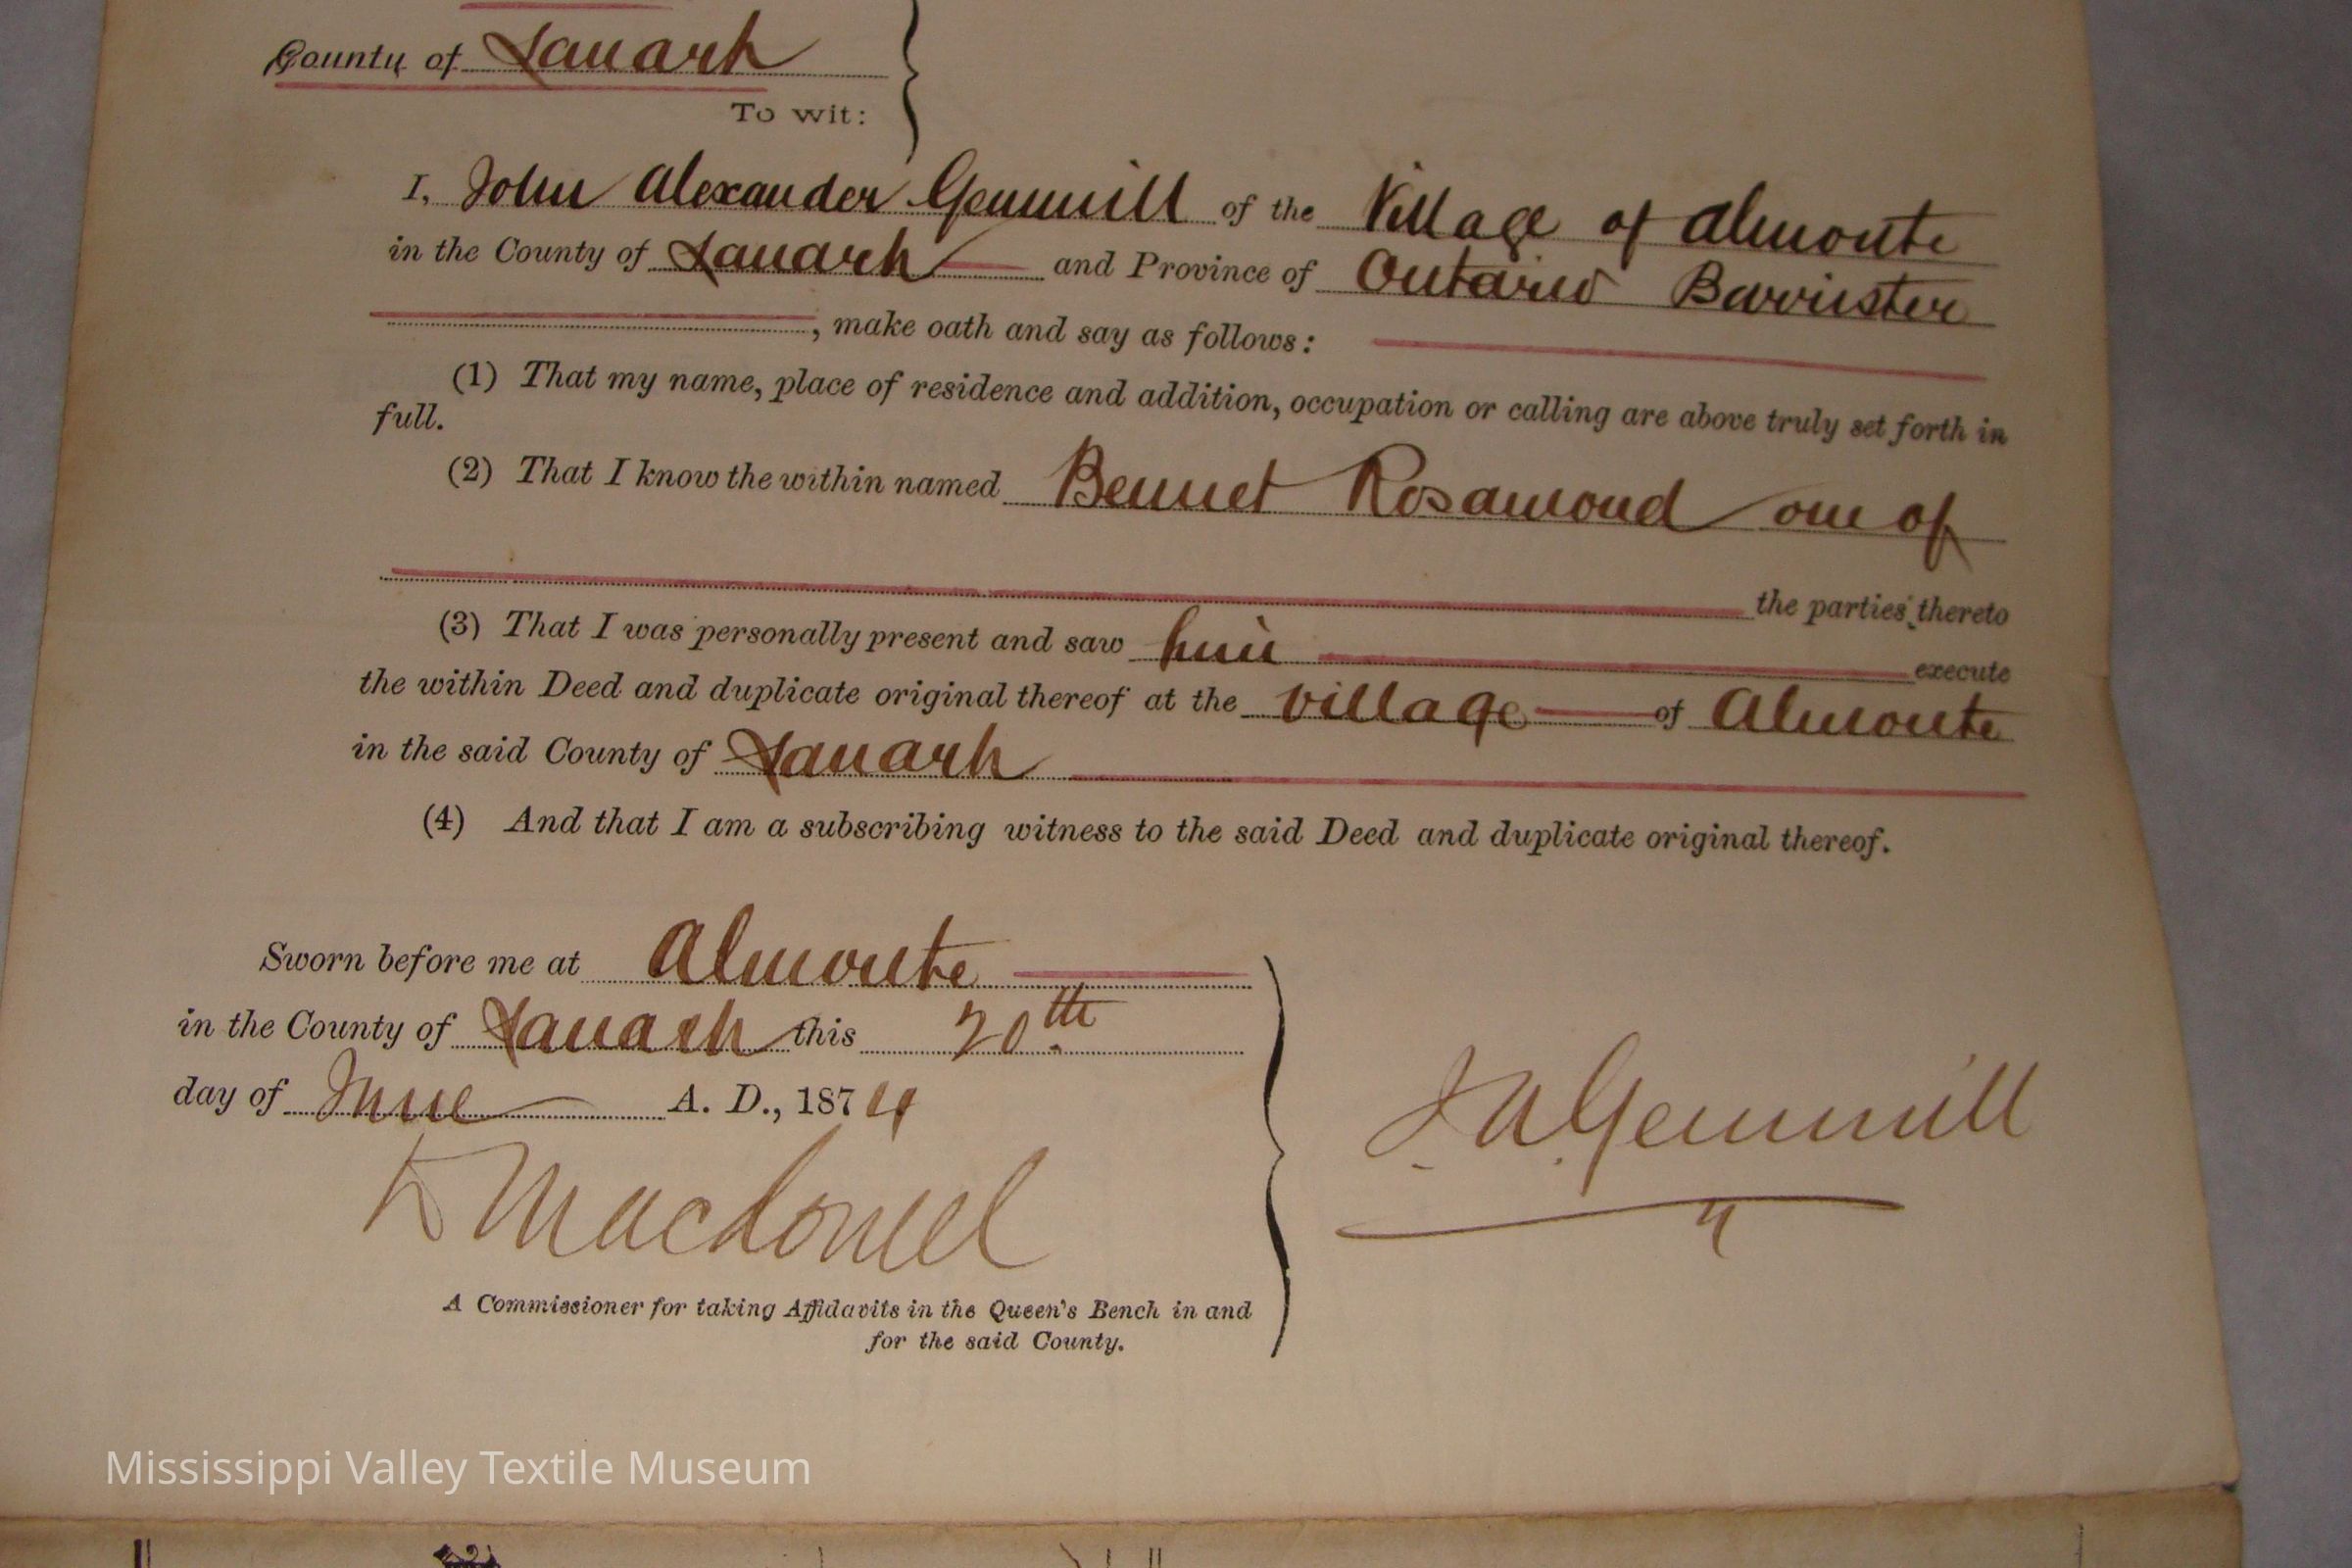 County of Lanark
To wit:
I, John Alexander Gemmill of the Village of Almonte
in the County of Lanark and Province of Ontario Barrister
, make oath and say as follows:
(1) That my name, place of residence and addition, occupation or calling are above truly set forth in
full.
(2) That I know the within named Bennet Rosamond one of
the parties thereto
(3) That I was personally present and saw him execute
the within Deed and duplicate original thereof at the village of Almonte
in the said County of Lanark
(4) And that I am a subscribing witness to the said Deed and duplicate original thereof.
Sworn before me at Almonte
in the County of Lanark this 20th
day of June A. D., 1874
J. A. Gemmill
Macdonell
A Commissioner for taking Affidavits in the Queen's Bench in and
for the said County.
Mississippi Valley Textile Museum